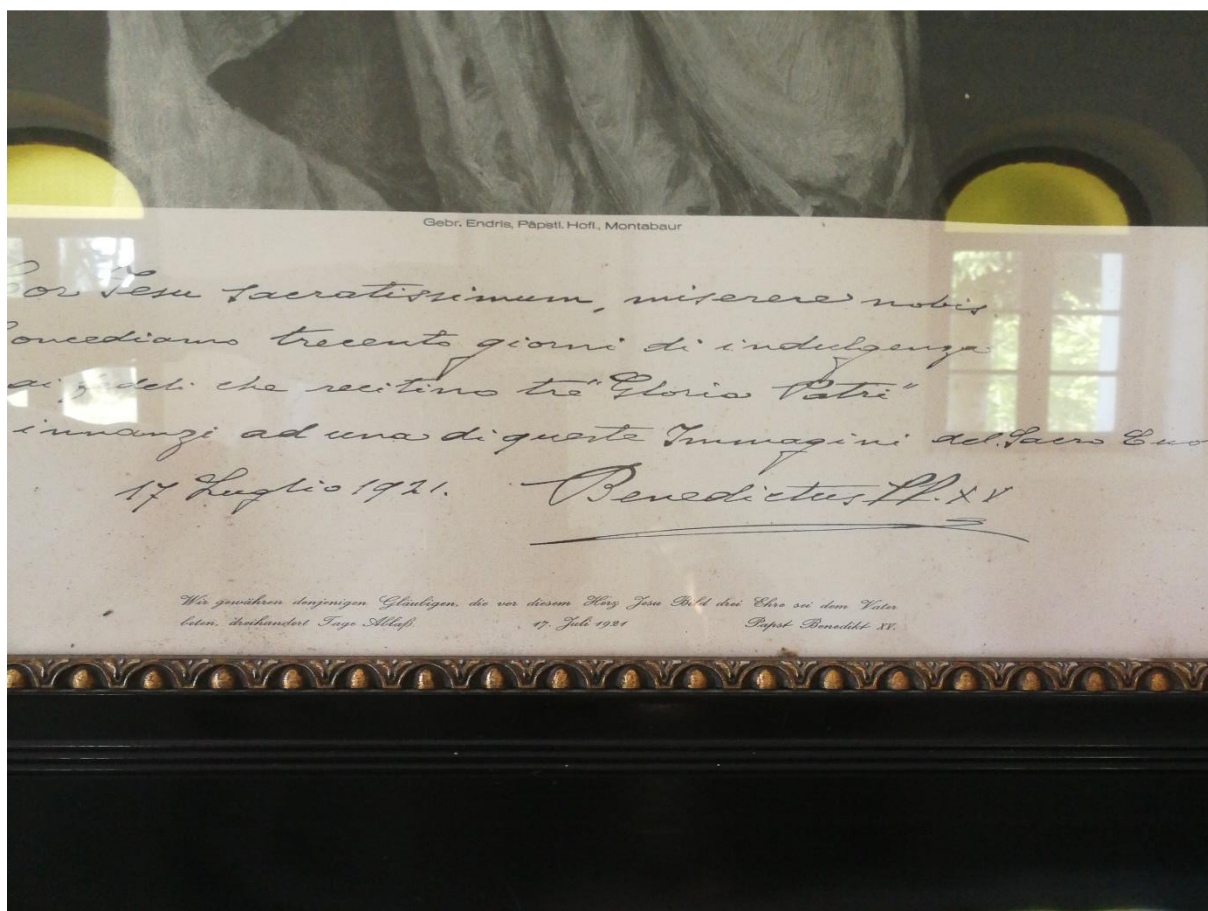 Gebr. Endris, Päpstl. Hofl., Montabaur
Cor Jesu sacratissimum, miserere nobis.
Concediamo trecento giorni di indulgenza
ai fedeli che recitino tre "Gloria Patri"
innanzi ad una di queste Immagini del Sacro Cuo
17 Luglio 1921. Benedictus PP. XV
Wir gewähren denjenigen Gläubigen, die vor diesem Herz Jesu Bild drei Ehre sei dem Vater
beten, dreihundert Tage Ablaß. 17. Juli 1921 Papst Benedikt XV.